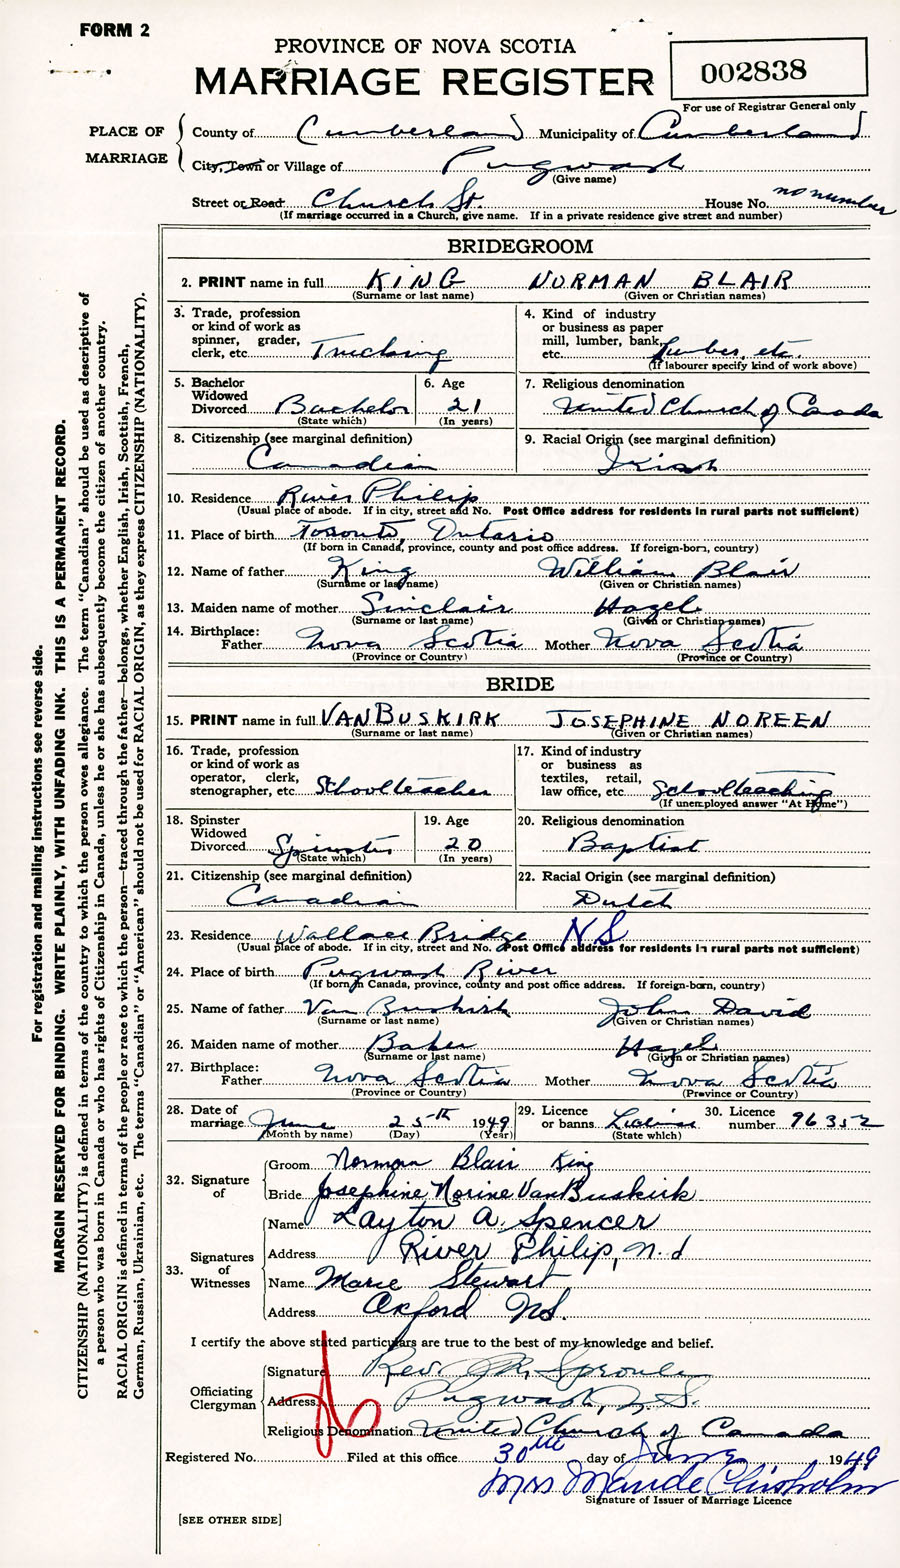 FORM 2
PROVINCE OF NOVA SCOTIA
MARRIAGE REGISTER
002838
For use of Registrar General only
PLACE OF MARRIAGE
County of Cumberland Municipality of Cumberland
City, Town or Village of Pugwash
(Give name)
Street or Road Church St. House No. no number
(If marriage occurred in a Church, give name. If in a private residence give street and number)
BRIDEGROOM
2. PRINT name in full KING NORMAN BLAIR
(Surname or last name) (Given or Christian names)
3. Trade, profession or kind of work as spinner, grader, clerk, etc. Trucking
4. Kind of industry or business as paper mill, lumber, bank, etc. Lumber, etc.
(If labourer specify kind of work above)
5. Bachelor Widowed Divorced Bachelor
(State which)
6. Age 21
(In years)
7. Religious denomination
United Church of Canada
8. Citizenship (see marginal definition)
Canadian
9. Racial Origin (see marginal definition)
Irish
10. Residence River Philip
(Usual place of abode. If in city, street and No. Post Office address for residents in rural parts not sufficient)
11. Place of birth Toronto, Ontario
(If born in Canada, province, county and post office address. If foreign-born, country)
12. Name of father King William Blair
(Surname or last name) (Given or Christian names)
13. Maiden name of mother Sinclair Hazel
(Surname or last name) (Given or Christian names)
14. Birthplace:
Father Nova Scotia Mother Nova Scotia
(Province or Country) (Province or Country)
BRIDE
15. PRINT name in full VANBUSKIRK JOSEPHINE NOREEN
(Surname or last name) (Given or Christian names)
16. Trade, profession or kind of work as operator, clerk, stenographer, etc. Schoolteacher
17. Kind of industry or business as textiles, retail, law office, etc. Schoolteaching
(If unemployed answer "At Home")
18. Spinster Widowed Divorced Spinster
(State which)
19. Age 20
(In years)
20. Religious denomination
Baptist
21. Citizenship (see marginal definition)
Canadian
22. Racial Origin (see marginal definition)
Dutch
23. Residence Wallace Bridge NS
(Usual place of abode. If in city, street and No. Post Office address for residents in rural parts not sufficient)
24. Place of birth Pugwash River
(If born in Canada, province, county and post office address. If foreign-born, country)
25. Name of father Van Buskirk John David
(Surname or last name) (Given or Christian names)
26. Maiden name of mother Baker Hazel
(Surname or last name) (Given or Christian names)
27. Birthplace:
Father Nova Scotia Mother Nova Scotia
(Province or Country) (Province or Country)
28. Date of marriage June 25th 1949
(Month by name) (Day) (Year)
29. Licence or banns License
(State which)
30. Licence number 96352
32. Signature of
Groom Norman Blair King
Bride Josephine Norine VanBuskirk
33. Signatures of Witnesses
Name Layton A. Spencer
Address River Philip, N.S
Name Marie Stewart
Address Oxford NS.
I certify the above stated particulars are true to the best of my knowledge and belief.
Officiating Clergyman
Signature Rev. Sproule
Address Pugwash, N.S.
Religious Denomination United Church of Canada
Registered No. Filed at this office 30th day of June 1949
Mrs Maude Chisholm
Signature of Issuer of Marriage Licence
[SEE OTHER SIDE]
For registration and mailing instructions see reverse side.
MARGIN RESERVED FOR BINDING. WRITE PLAINLY, WITH UNFADING INK. THIS IS A PERMANENT RECORD.
CITIZENSHIP (NATIONALITY) is defined in terms of the country to which the person owes allegiance. The term "Canadian" should be used as descriptive of
a person who was born in Canada or who has rights of Citizenship in Canada, unless he or she has subsequently become the citizen of another country.
RACIAL ORIGIN is defined in terms of the people or race to which the person—traced through the father—belongs, whether English, Irish, Scottish, French,
German, Russian, Ukrainian, etc. The terms "Canadian" or "American" should not be used for RACIAL ORIGIN, as they express CITIZENSHIP (NATIONALITY).